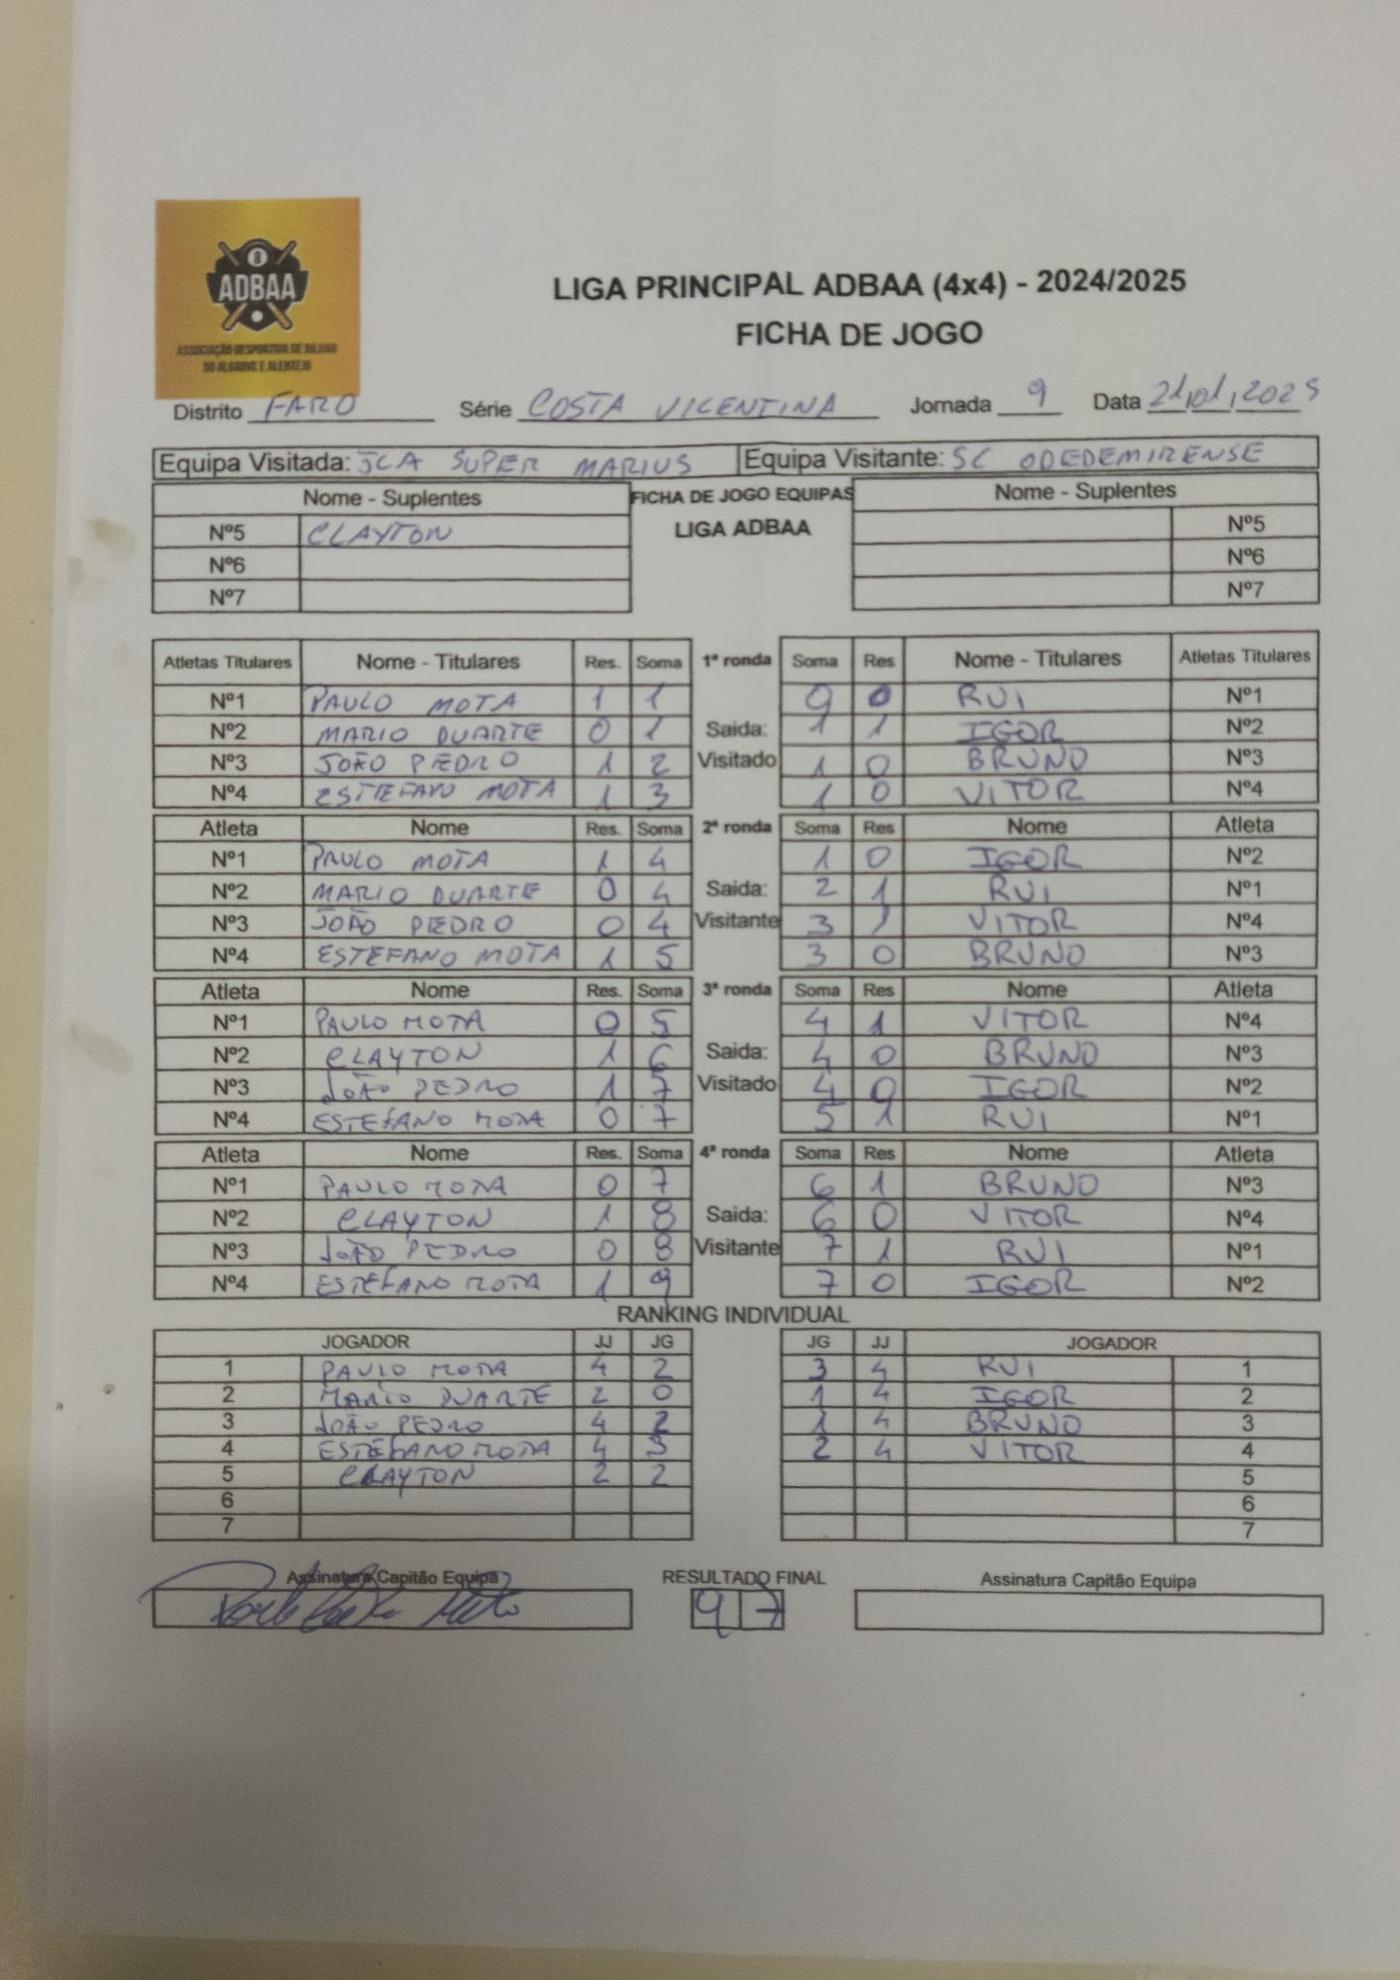 ADBAA
ASSOCIAÇÃO DESPORTIVA DE BILHAR
DO ALGARVE E ALENTEJO
LIGA PRINCIPAL ADBAA (4x4) - 2024/2025
FICHA DE JOGO
Distrito FARO Série COSTA VICENTINA Jornada 9 Data 21/01/2025
Equipa Visitada: JCA SUPER MARIUS Equipa Visitante: SC ODEDEMIRENSE
Nome - Suplentes FICHA DE JOGO EQUIPAS Nome - Suplentes
Nº5 CLAYTON LIGA ADBAA Nº5
Nº6 Nº6
Nº7 Nº7
Atletas Titulares Nome - Titulares Res. Soma 1ª ronda Soma Res Nome - Titulares Atletas Titulares
Nº1 PAULO MOTA 1 1 0 0 RUI Nº1
Nº2 MARIO DUARTE 0 1 Saida: 1 1 IGOR Nº2
Nº3 JOÃO PEDRO 1 2 Visitado 1 0 BRUNO Nº3
Nº4 ESTTEFANO MOTA 1 3 1 0 VITOR Nº4
Atleta Nome Res. Soma 2ª ronda Soma Res Nome Atleta
Nº1 PAULO MOTA 1 4 1 0 IGOR Nº2
Nº2 MARIO DUARTE 0 4 Saida: 2 1 RUI Nº1
Nº3 JOÃO PEDRO 0 4 Visitante 3 1 VITOR Nº4
Nº4 ESTEFANO MOTA 1 5 3 0 BRUNO Nº3
Atleta Nome Res. Soma 3ª ronda Soma Res Nome Atleta
Nº1 PAULO MOTA 0 5 4 1 VITOR Nº4
Nº2 CLAYTON 1 6 Saida: 4 0 BRUNO Nº3
Nº3 JOÃO PEDRO 1 7 Visitado 4 0 IGOR Nº2
Nº4 ESTEFANO MOTA 0 7 5 1 RUI Nº1
Atleta Nome Res. Soma 4ª ronda Soma Res Nome Atleta
Nº1 PAULO MOTA 0 7 6 1 BRUNO Nº3
Nº2 CLAYTON 1 8 Saida: 6 0 VITOR Nº4
Nº3 JOÃO PEDRO 0 8 Visitante 7 1 RUI Nº1
Nº4 ESTEFANO MOTA 1 9 7 0 IGOR Nº2
RANKING INDIVIDUAL
JOGADOR JJ JG JG JJ JOGADOR
1 PAULO MOTA 4 2 3 4 RUI 1
2 MARIO DUARTE 2 0 1 4 IGOR 2
3 JOÃO PEDRO 4 2 1 4 BRUNO 3
4 ESTEFANO MOTA 4 3 2 4 VITOR 4
5 CLAYTON 2 2 5
6 6
7 7
Assinatura Capitão Equipa RESULTADO FINAL Assinatura Capitão Equipa
9 7